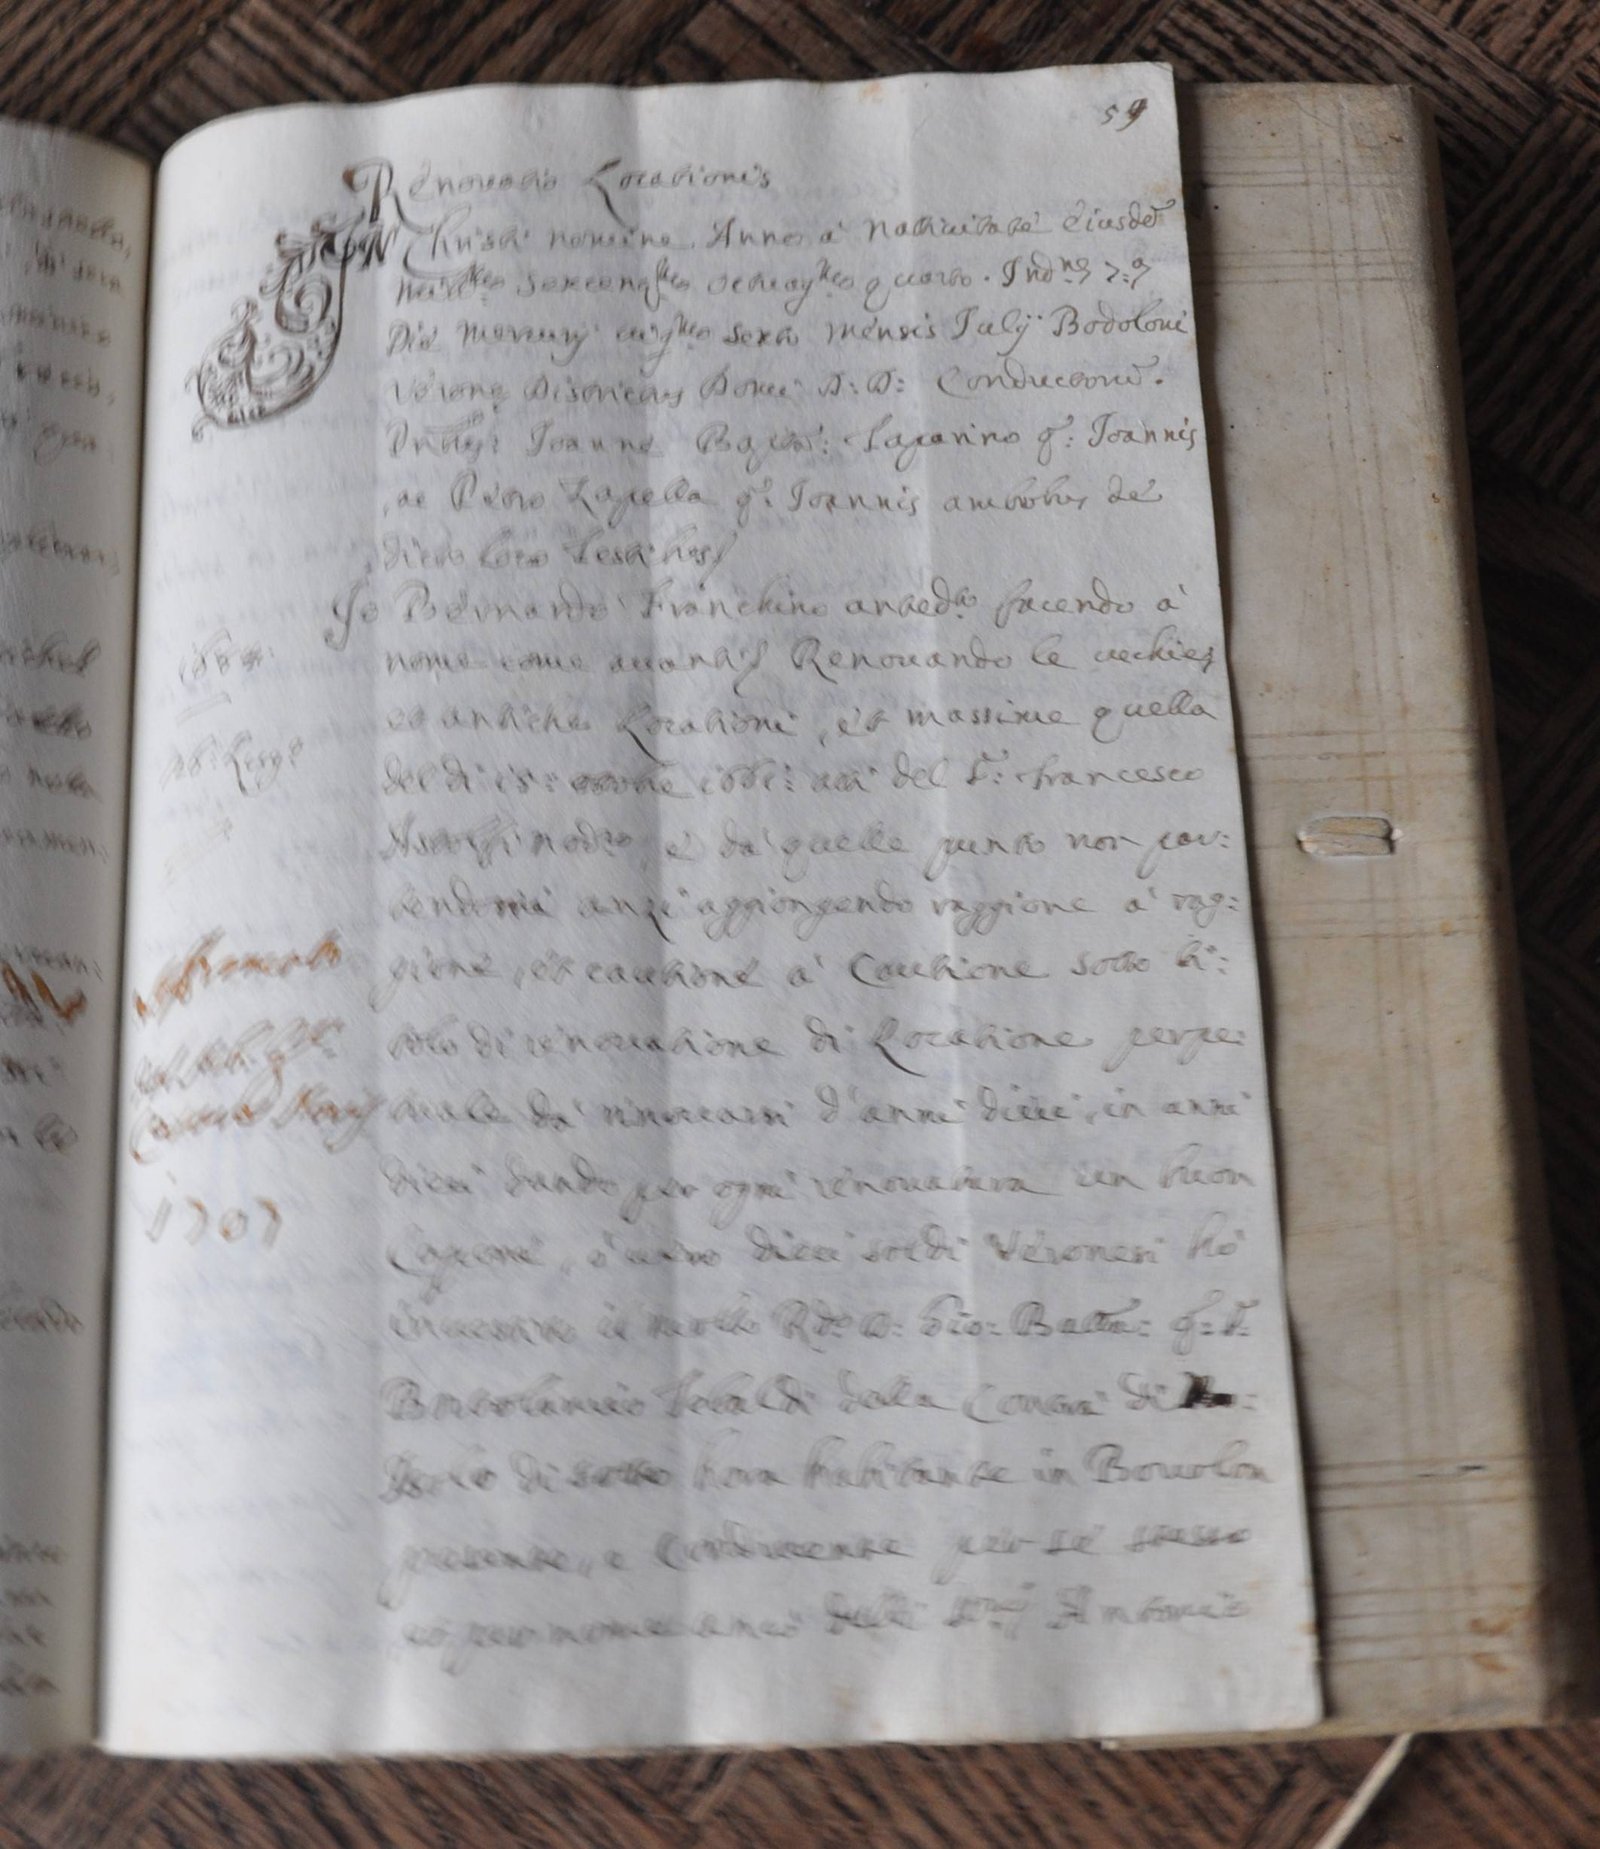 59
Renovatio Locationis
IN Christi nomine Anno à Nativitate eiusdẽ
Mill.mo sexcent.mo octuag.mo quarto. Ind.ne 7.a
Die Mercurij vig.mo sexto mensis Julij Bodoloni
Veronę Districtus Domi D: D: Conductorũ.
Joanne Bapta: q: Joannis
ac Petro Zapella q: Joannis ambobus de
dicto loco testibus
Io Bernardo Franchino anted.o facendo à
nome come avanti Renovando le vechie
et antiche Locationi, et massime quella
del di 15: 1661: atti del S: Francesco
nod.o, e da quelle punto non par:
tendomi anzi aggiongendo raggione à rag:
gione, et cautione à Cautione sotto ti:
tolo di renovatione di Locatione perpe:
tuale da rinovarsi d'anni dieci, in anni
dieci dando per ogni renovatura un buon
Capone, ò vero dieci soldi Veronesi hò
investito il molto Rdo D: Gio: Batta: q: S:
Bortolamio Tobaldi della di
di sotto hora habitante in Bovolon
presente, e Conducente per se stesso
et per nome anco delli Antonio
1684:
1707